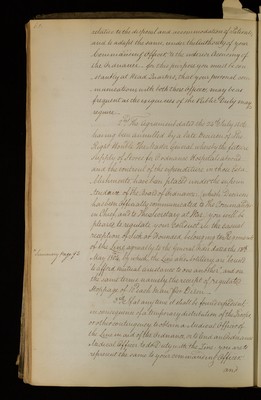 relative to the disposal and accommodation of Patients,
and to adopt the same, under the Authority of your
Commanding Officer, to the interior Economy of
the Ordnance. For this purpose you must be con-
stantly at Head Quarters, that your personal com-
munications with both these offices may be as
frequent as the exigencies of the Public Duty may
require.
2d The Agreement dated the
having been annulled by a late Decision of the
Right Honble the Master General, whereby the future
supply of Stores for Ordnance Hospitals abroad
and the control of the expenditure in their
have been placed under the
of the Decision
has been officially communicated to the Commander
in Chief, and to the Secretary at War, you will be
pleased to regulate your Conduct in the casual
reception of sick or Wounded belonging to Regiments
of the Line agreeably to the General Order dated 19th
May by which the Line and Artillery are bound
to afford mutual assistance to one another and on
the same terms, namely the receipt of regulated
Stoppage of 9d each Man per Diem.
3d If at any time it shall be found expedient
in consequence of a temporary destitution of the Troops
or other contingency to obtain a Medical Officer of
the Line in aid of the Ordnance, or to lend an Ordnance
Medical Officer to do Duty with the Line, you are to
represent the same to your commanding Officer
and